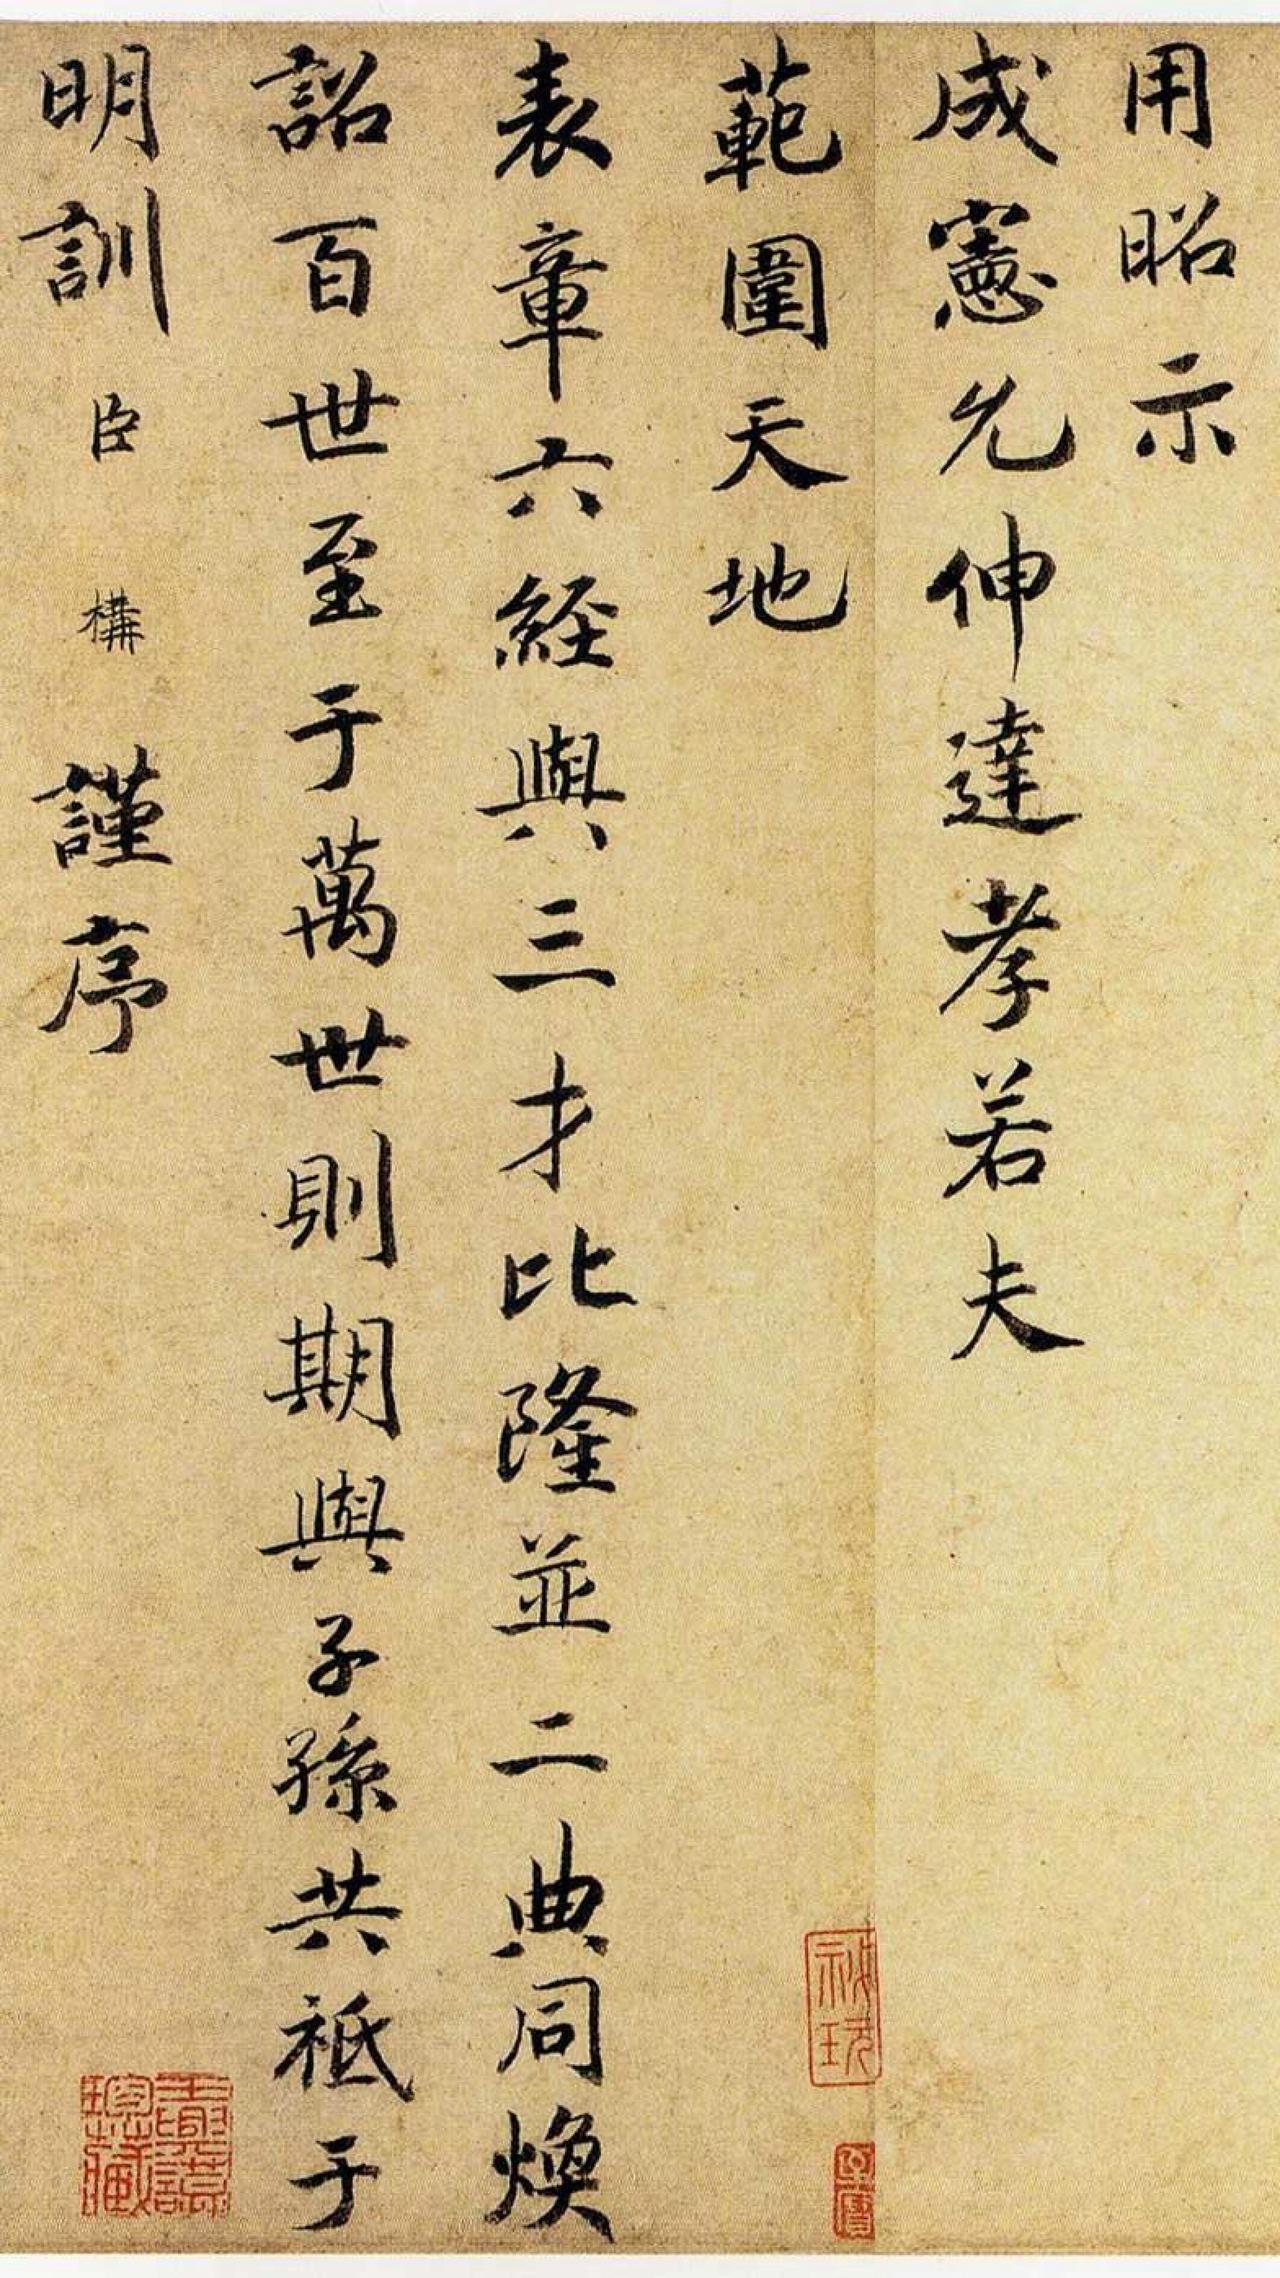 用昭示
成憲允伸達孝若夫
範圍天地
表章六經與三才比隆並二典同煥
詔百世至于萬世則期與子孫共祗于
明訓臣構謹序
秘玩